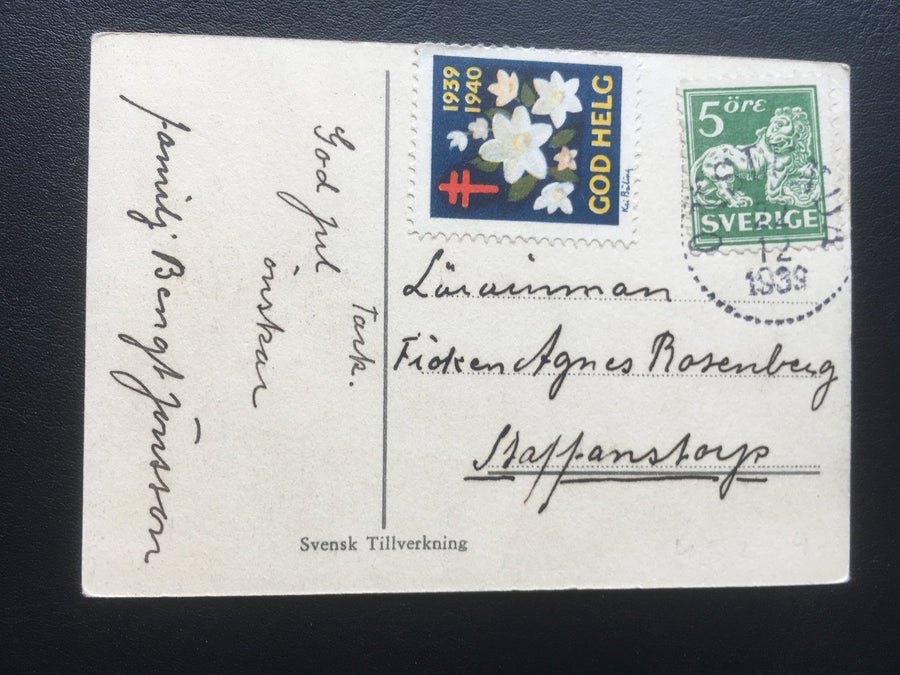 God jul
önskar
Tack.
familj Bengt Jönsson
1939
1940
GOD HELG
5 öre
SVERIGE
12
1939
Lärarinnan
Fröken Agnes Rosenberg
Staffanstorp
Svensk Tillverkning